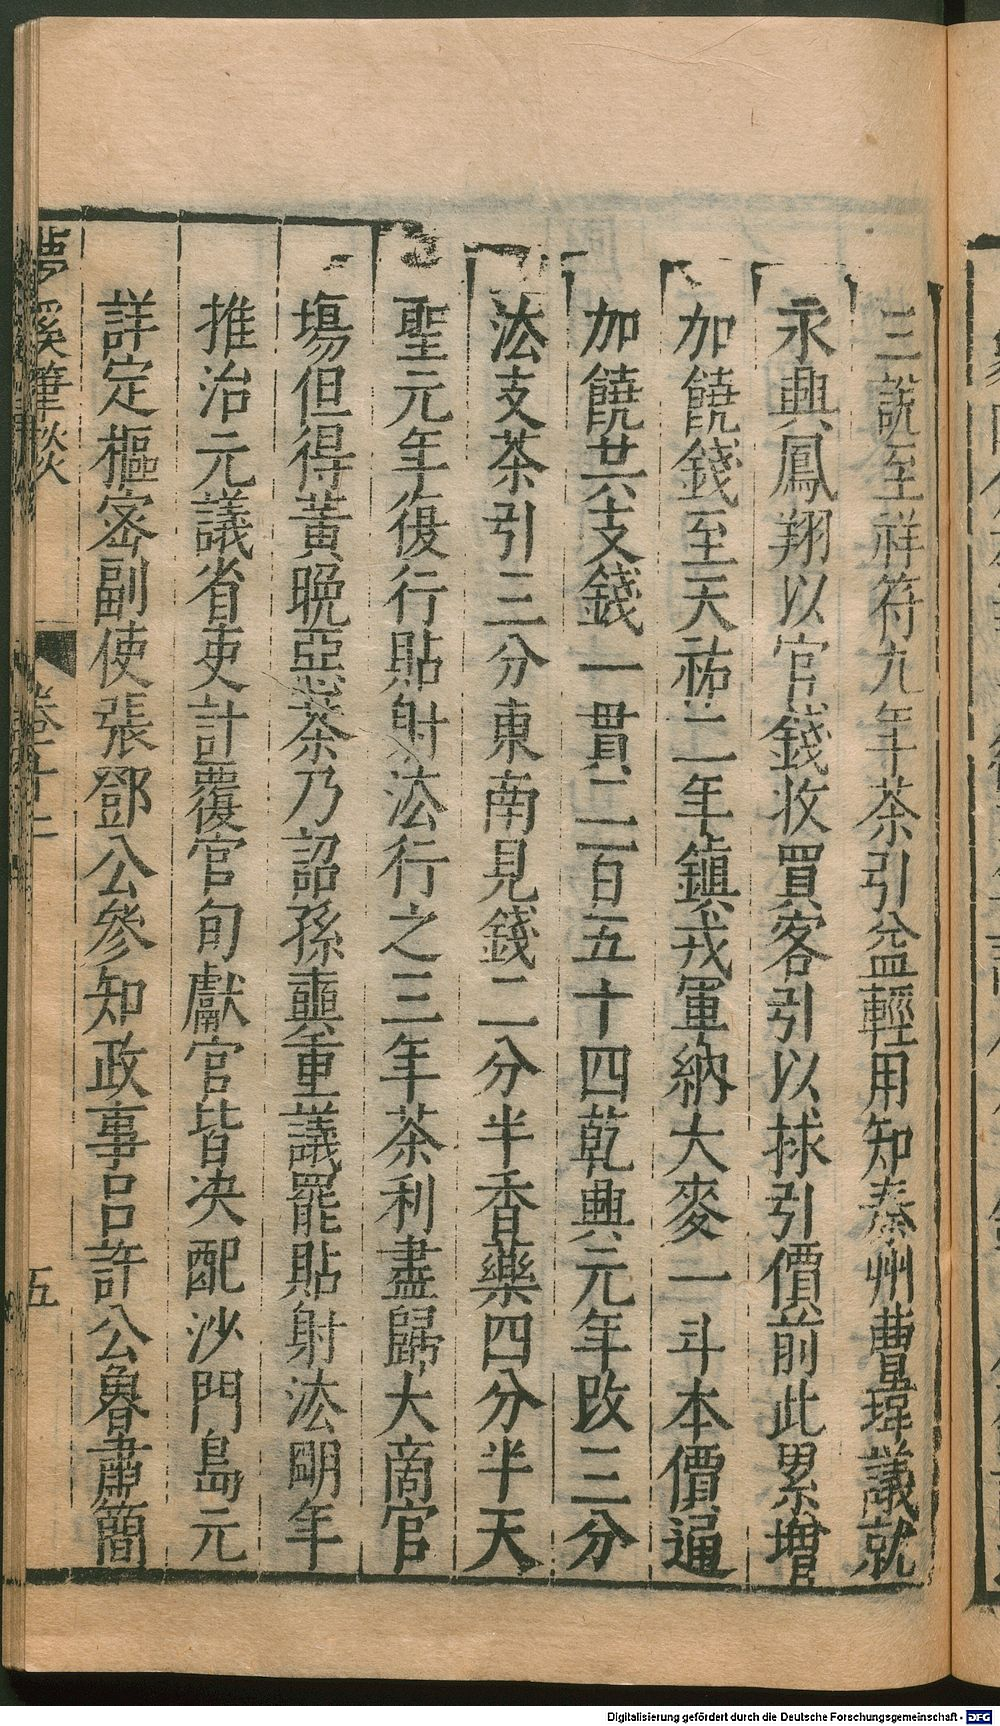 三說至祥符九年茶引益輕用知秦州曹瑋議就
永興鳳翔以官錢收買客引以捄引價前此累增
加饒錢至天祐二年鎮戎軍納大麥一斗本價通
加饒共支錢一貫二百五十四乾興元年改三分
法支茶引三分東南見錢二分半香藥四分半天
聖元年復行貼射法行之三年茶利盡歸大商官
塲但得黃晚惡茶乃詔孫奭重議罷貼射法明年
推治元議省吏計覆官旬獻官皆决配沙門島元
詳定樞密副使張鄧公參知政事呂許公魯肅簡
夢溪筆談
卷十二
五
Digitalisierung gefördert durch die Deutsche Forschungsgemeinschaft - DFG